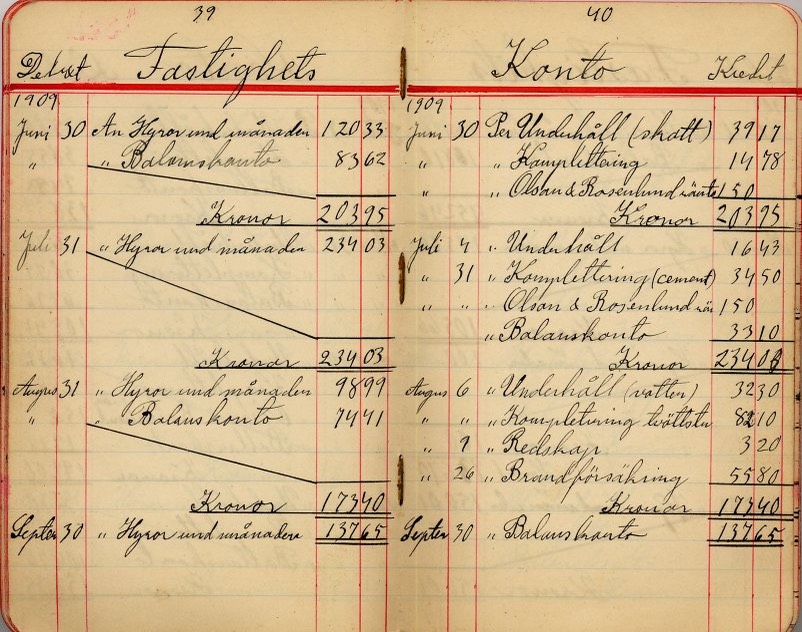 39
Debet Fastighets
1909
Juni 30 An Hyror und månaden 120 33
" " Balanskonto 83 62
Kronor 203 95
Juli 31 " Hyror und månaden 234 03
Kronor 234 03
Augus 31 " Hyror und månaden 98 99
" " Balanskonto 74 41
Kronor 173 40
Septem 30 " Hyror und månaden 137 65
40
Konto Kredit
1909
Juni 30 Per Underhåll (skatt) 39 17
" " Komplettering 14 78
" " Olson & Rosenlund ränta 150
Kronor 203 95
Juli 4 " Underhåll 16 43
" 31 " Komplettering (cement) 34 50
" " " Olson & Rosenlund rän 150
" Balanskonto 33 10
Kronor 234 03
Augus 6 " Underhåll (vatten) 32 30
" " " Komplettering tvättstu 82 10
" 7 " Redskap 3 20
" 26 " Brandförsäkring 55 80
Kronor 173 40
Septem 30 " Balanskonto 137 65